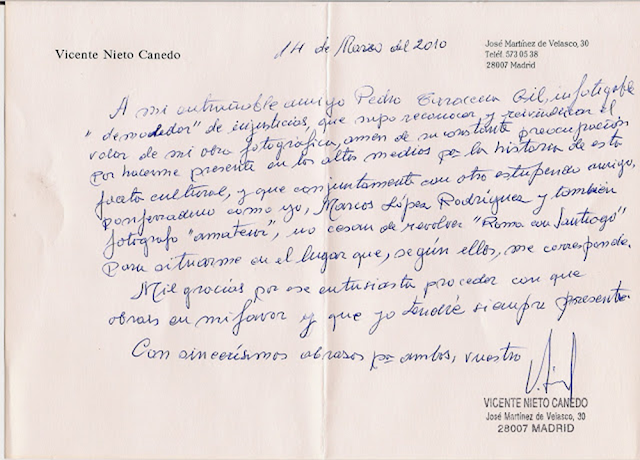 Vicente Nieto Canedo
14 de Marzo del 2010
José Martínez de Velasco, 30
Teléf. 573 05 38
28007 Madrid
A mi entrañable amigo Pedro Gil, infatigable
"desvededor" de injusticias, que supo reconocer y reivindicar el
valor de mi obra fotográfica, amén de su constante preocupación
por hacerme presente en los altos medios pª la historia de esta
faceta cultural, y que conjuntamente con otro estupendo amigo,
ponferradino como yo, Marcos López Rodríguez y también
fotógrafo "amateur", no cesan de revolver "Roma con Santiago"
para situarme en el lugar que, según ellos, me corresponde.
Mil gracias por ese entusiasta proceder con que
obrais en mi favor y que yo tendré siempre presente.
Con sincerísimos abrazos pª ambos, vuestro
VICENTE NIETO CANEDO
José Martínez de Velasco, 30
28007 MADRID